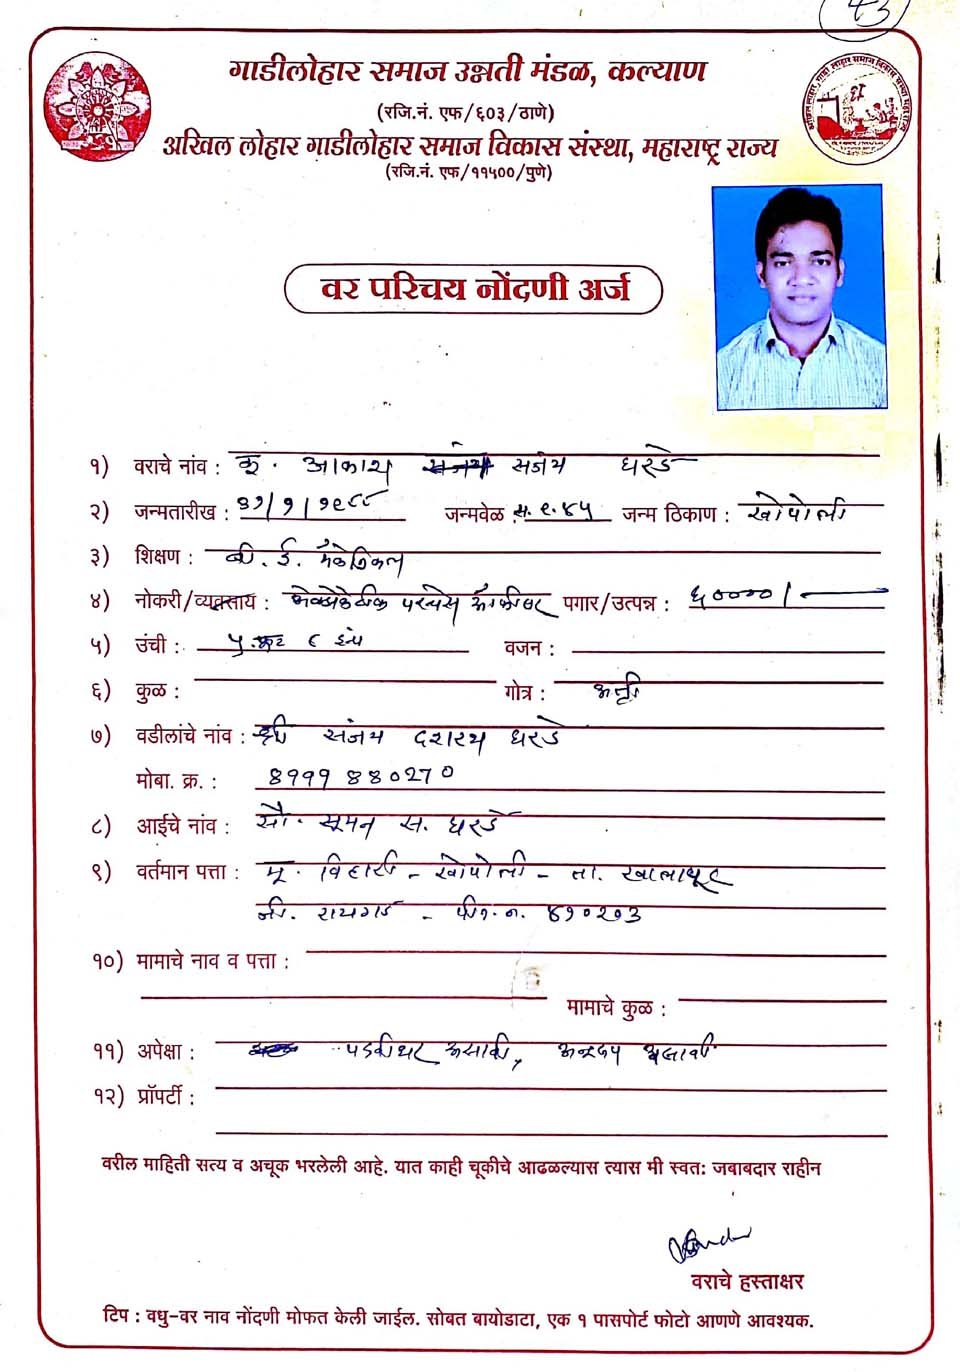 43
गाडीलोहार समाज उन्नती मंडळ, कल्याण
(रजि.नं. एफ/६०३/ठाणे)
अखिल लोहार गाडीलोहार समाज विकास संस्था, महाराष्ट्र राज्य
(रजि.नं. एफ/११५००/पुणे)
वर परिचय नोंदणी अर्ज
१) वराचे नांव : कु. आकाश संजय घरडे
२) जन्मतारीख : ३१/१/१९८८ जन्मवेळ : स. ९.४५ जन्म ठिकाण : खोपोली
३) शिक्षण : बी. ई. मॅकेनिकल
४) नोकरी/व्यवसाय : परचेस ऑफीसर पगार/उत्पन्न : ६००००/-
५) उंची : ५ फुट ८ इंच वजन :
६) कुळ : गोत्र : अत्री
७) वडीलांचे नांव : श्री संजय दशरथ घरडे
मोबा. क्र. : 8999880270
८) आईचे नांव : सौ. सुमन स. घरडे
९) वर्तमान पत्ता : मु. विहारी - खोपोली - ता. खालापूर
जी. रायगड - पी.न. ४१०२०३
१०) मामाचे नाव व पत्ता :
मामाचे कुळ :
११) अपेक्षा : पदवीधर असावी, अनुरूप असावी
१२) प्रॉपर्टी :
वरील माहिती सत्य व अचूक भरलेली आहे. यात काही चूकीचे आढळल्यास त्यास मी स्वतः जबाबदार राहीन
वराचे हस्ताक्षर
टिप : वधु-वर नाव नोंदणी मोफत केली जाईल. सोबत बायोडाटा, एक १ पासपोर्ट फोटो आणणे आवश्यक.